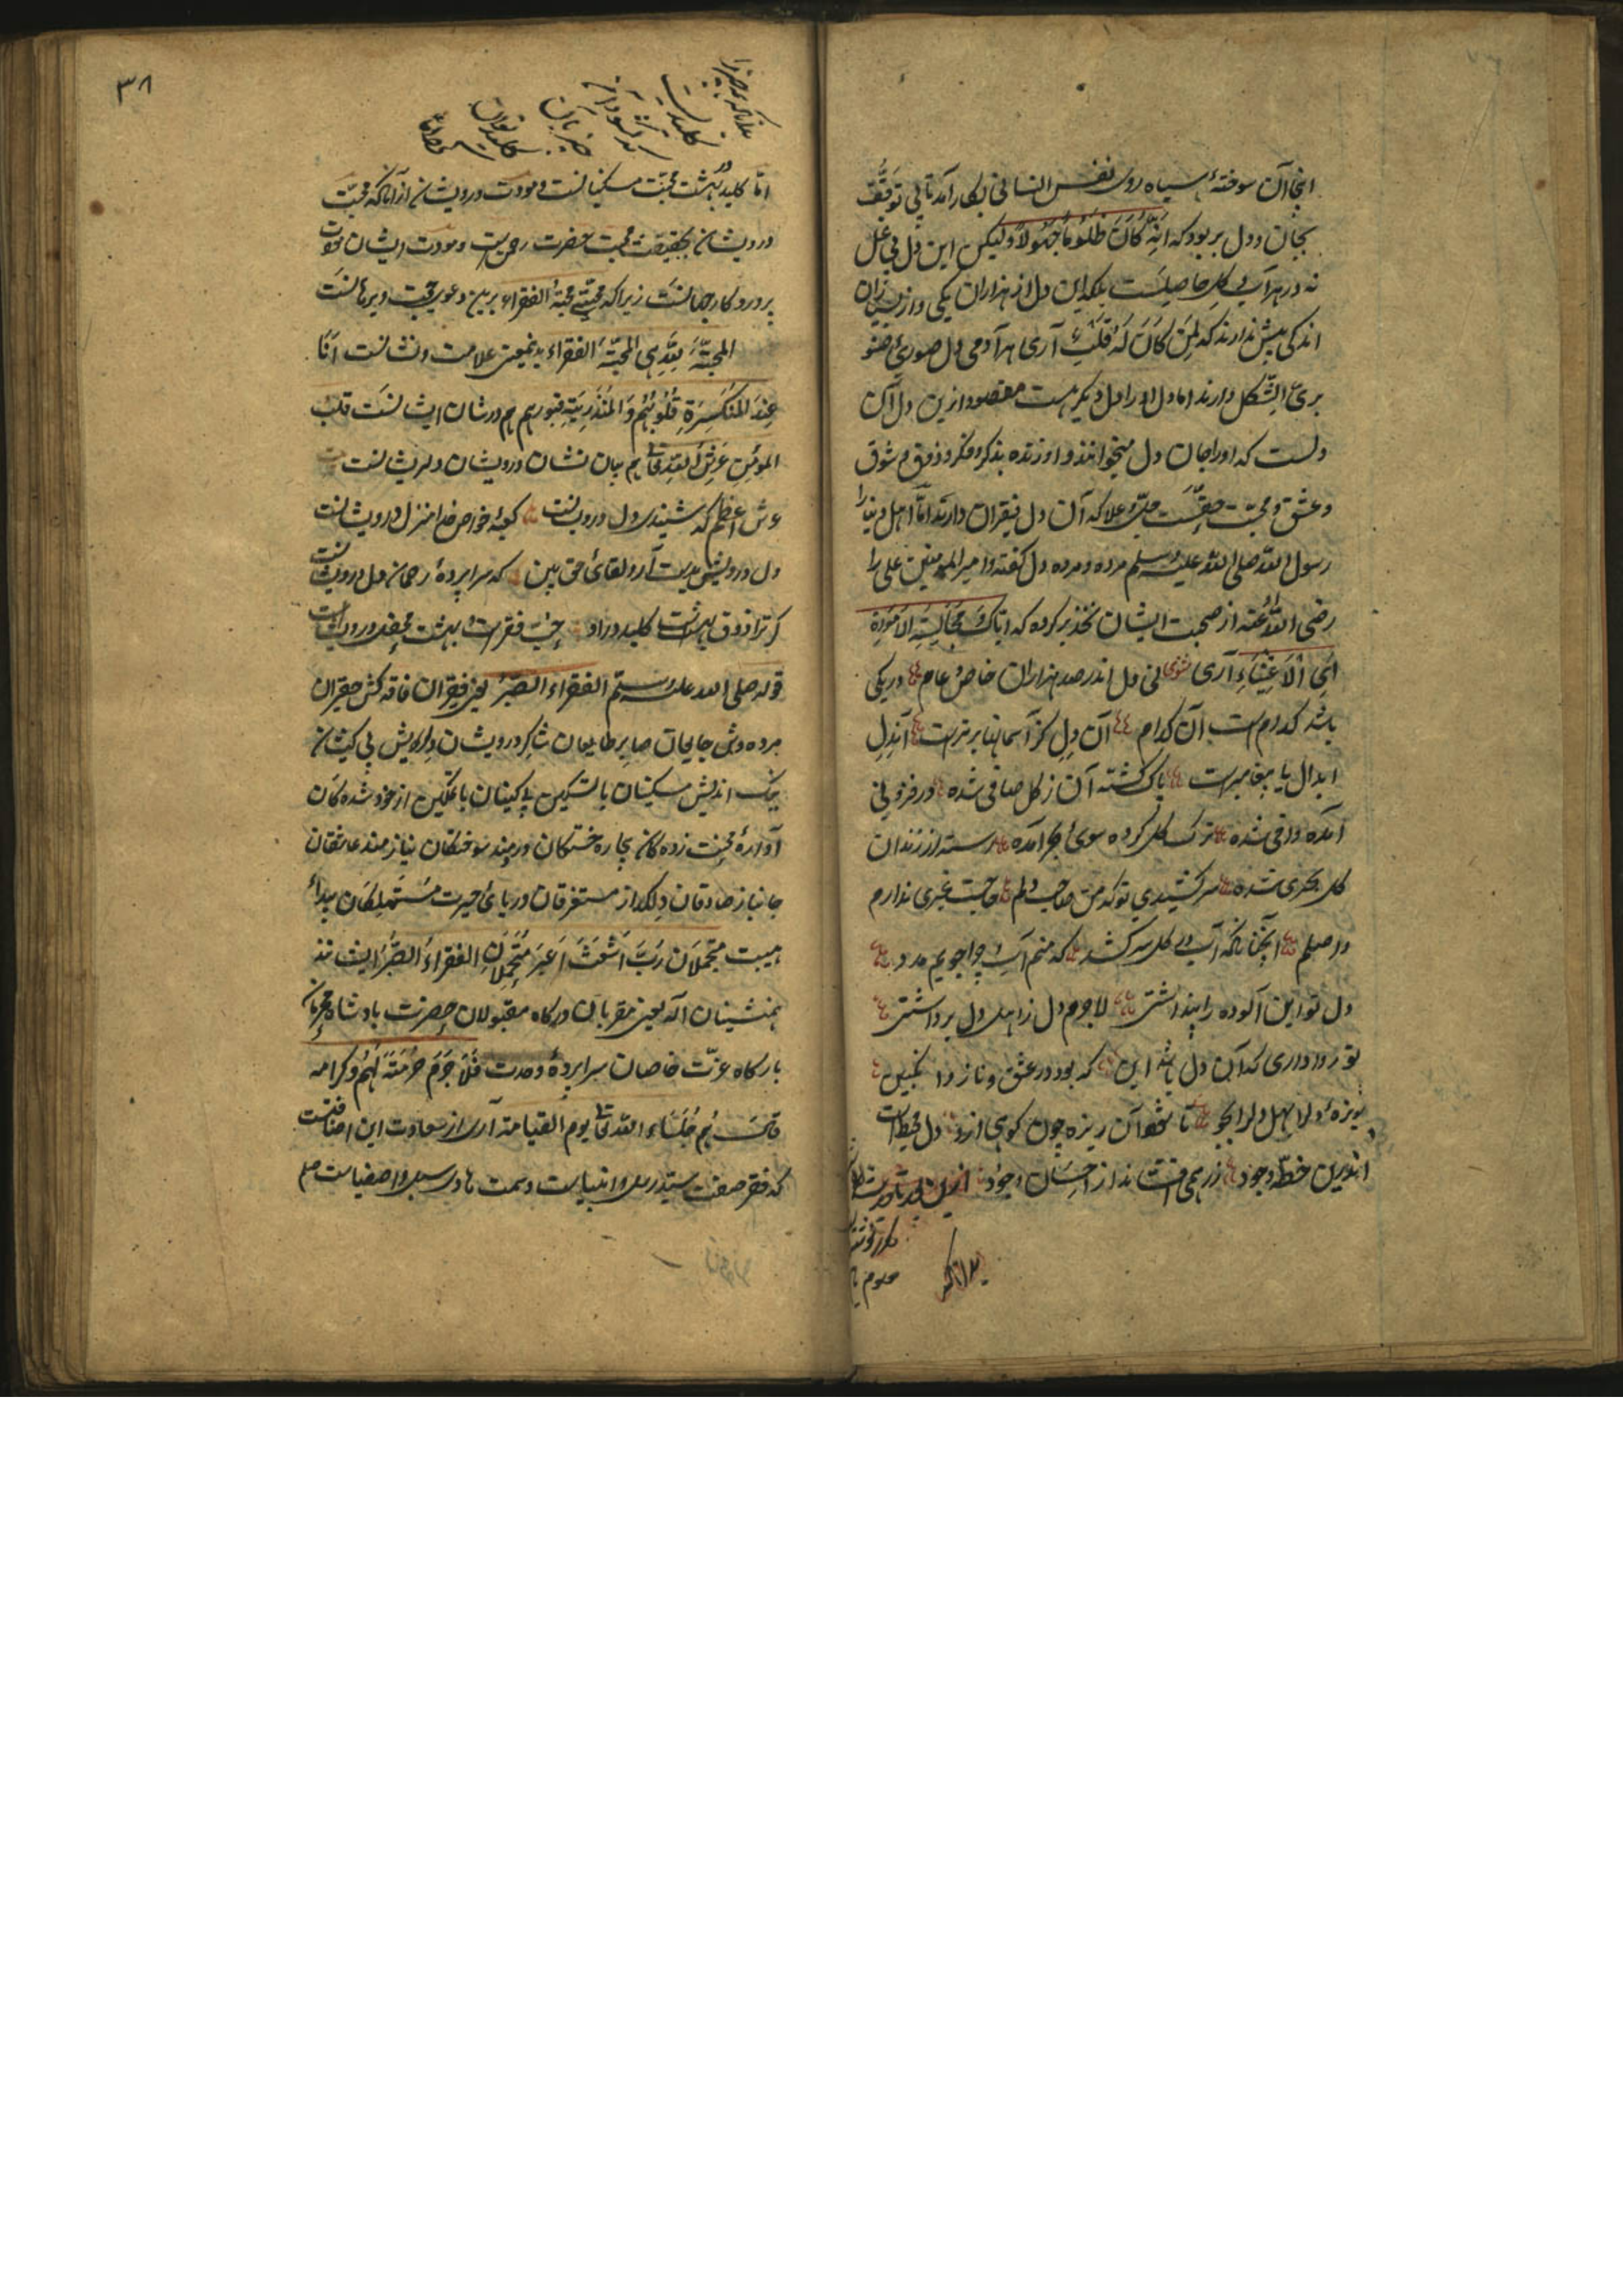 اینجا آن سوختهٔ سیاه روی نفس انسانی بکار آمد تا بی توقف
بجان و دل بربود که اِنَّهُ کَانَ ظَلُومًا جَهُولاً ولیکن این دل بی غل
نه در هر آب و گل حاصلست بلکه این دل از هزاران یکی و از بسیاران
اندکی بیش ندارند که لِمَن کَانَ لَهُ قَلبٌ آری هر آدمی دل صوری صنو
بری الشکل دارند اما دل او را دل دیگر هست مقصود ازین دل آن
دلست که او را جان دل میخوانند و او زنده بذکر و فکر و ذوق و شوق
و عشق و محبت حقست جل و علا که آن دل فقیران دارند اما اهل دنیا را
رسول الله صلی الله علیه وسلم مرده و مرده دل گفته و امیر المومنین علی را
رضی الله عنه از صحبت ایشان تحذیر کرده که ایاک و مجالسة الاموات
اَیِ الاَغنِیَاءِ آری مثنوی نی دل اندر صد هزاران خاص و عام در یکی
باشد کدام است آن کدام آن دل کز آسمانها برترست آن دل
ابدال یا پیغامبرست پاک گشته آن ز گل صافی شده در فزونی
آمده وافی شده ترک گل کرده سوی بحر آمده رسته از زندان
گل بحری شده سر کشیدی تو که من صاحب دلم حاجت غیری ندارم
واصلم آنچنانکه آب در گل سر کشد که منم آب و چرا جویم مدد
دل تو این آلوده را پنداشتی لاجرم دل ز اهل دل برداشتی
تو روا داری که آن دل باشد این که بود در عشق و ناز و انگبین
ریزهٔ دل را بهل دل را بجو تا شود آن ریزه چون کوهی ازو دل محیط است
اندرین خط وجود زر همی افشاند از احسان و جود
مکرر نوشته
معلوم
بدانکه
۳۸
بدانکه هر چیز را
کلیدیست
اما کلید بهشت محبت مسکینانست و مودت درویشان از آنکه محبت
درویشان بحقیقت محبت حضرت رحمن است و مودت ایشان مودت
پروردگار جهانست زیرا که محبتی محبة الفقراء برین دعوی حجت و برهانست
المحبة لله هی المحبة الفقراء بدینمعنی علامت و نشانست اَنَا
عِندَ المُنکَسِرَةِ قُلُوبُهُم وَالمُنذَرِسَةِ قبورهم هم در شان ایشانست قلب
المؤمن عرش الله تعالی هم بیان نشان درویشان دلریشانست
عرش اعظم که شنیدی دل درویشانست کعبهٔ خواص خدا منزل درویشانست
دل درویش بدست آر و لقای حق بین که سراپردهٔ رحمان دل درویشانست
گر ترا ذوق بهشتست کلید در او حب فقرست و بهشت محفل درویشانست
قوله صلی الله علیه وسلم الفقراء الصُبَّر یعنی فقیران فاقه کش حقیران
مرده وش جایعان صابر طایعان شاکر درویشان دلریش بی کیشان
نیک اندیش مسکینان بالتسکین پاکبینان باتمکین از خود شده گان
آوارهٔ محنت زده گان بیچاره خستگان دردمند سوختگان نیازمند عاشقان
جانباز صادقان دلگداز مستغرقان دریای حیرت مستهلکان بیداء
هیبت متحملان رُبَّ اَشعَثَ اَغبَرَ متحملان الفقراء الصُبَّر ایشانند
همنشینان اله یعنی مقربان درگاه مقبولان حضرت بادشاه محرمان
بارگاه عزت خاصان سراپردهٔ وحدت فَلاَ جَرَمَ حُرمَةً لَهُم وکرامة
قال هُم جُلَسَاءُ الله تعالی یوم القیامة آری از سعادت این اضافتست
که فقر صفت سید رسل و انبیاست و سمت هادی سبل و اصفیاست صلعم